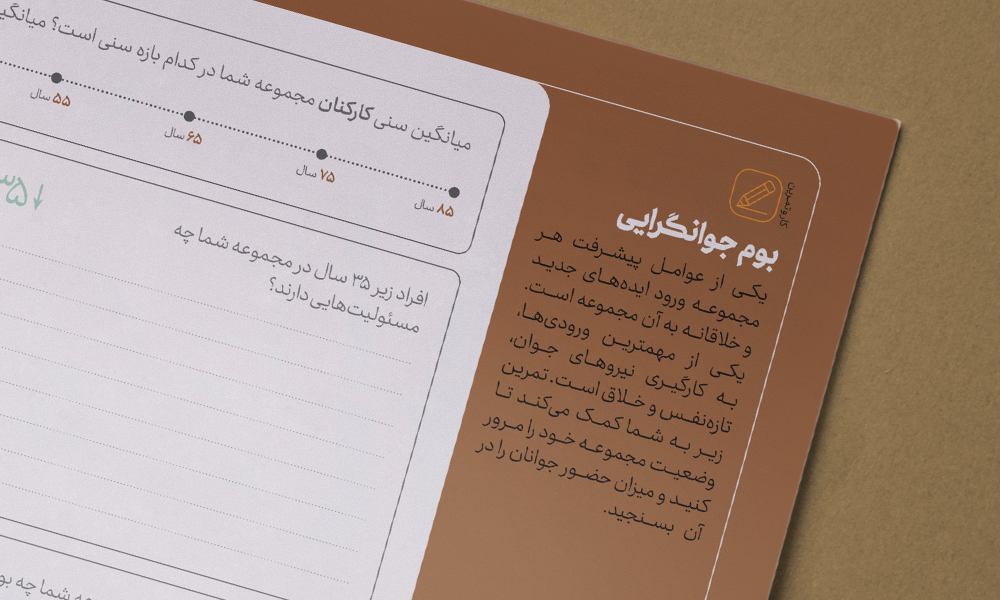 کار و تمرین
بوم جوانگرایی
یکی از عوامل پیشرفت هر
مجموعه ورود ایده‌های جدید
و خلاقانه به آن مجموعه است.
یکی از مهمترین ورودی‌ها،
به کارگیری نیروهای جوان،
تازه‌نفس و خلاق است. تمرین
زیر به شما کمک می‌کند تا
وضعیت مجموعه خود را مرور
کنید و میزان حضور جوانان را در
آن بسنجید.
میانگین سنی کارکنان مجموعه شما در کدام بازه سنی است؟
۸۵ سال
۷۵ سال
۶۵ سال
۵۵ سال
افراد زیر ۳۵ سال در مجموعه شما چه
مسئولیت‌هایی دارند؟
↓۳۵
شما چه